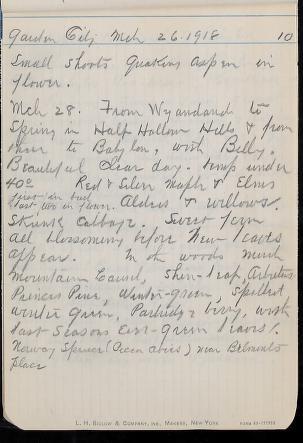 Garden City Mch 26. 1918 10
Small shoots Quaking aspen in
flower.
Mch 28. From Wyandand to
Spring in Half Hollow Hills & from
there to Babylon, with Billy.
Beautiful clear day. temp under
40° Red & Silver Maple & Elms
first in bud
last two in flower. Alders & willows.
Skunk Cabbage. Sweet Fern
All blossoming before New leaves
appear. In oak woods much
Mountain Laurel, Shin-leaf, Arbutus
Princes Pine, Winter-green, Spotted
winter green, Partridge berry, with
last seasons ever-green leaves.
Norway Spruce (Picea abies) near Belmonts
place
L. H. BIGLOW & COMPANY, INC., MAKERS, NEW YORK